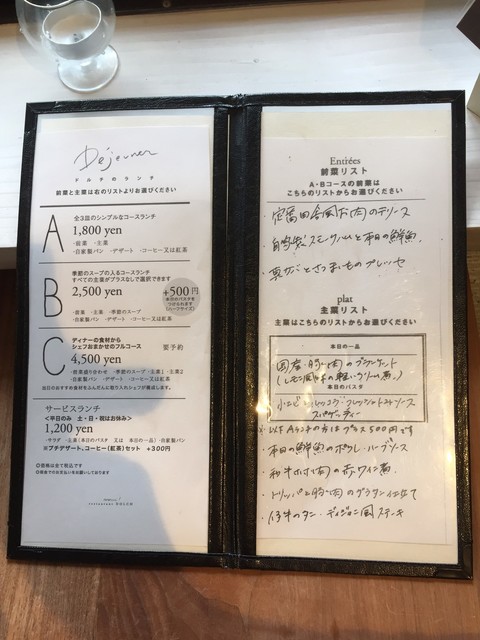 Déjeuner
ドルチのランチ
前菜と主菜は右のリストよりお選びください
A
全3皿のシンプルなコースランチ
1,800 yen
・前菜 ・主菜
・自家製パン ・デザート ・コーヒー又は紅茶
B
季節のスープの入るコースランチ
すべての主菜がプラスなしで選択できます
2,500 yen
・前菜 ・主菜 ・季節のスープ
・自家製パン ・デザート ・コーヒー又は紅茶
+500円
本日のパスタを
つけられます
(ハーフサイズ)
C
ディナーの食材から
シェフおまかせのフルコース
要予約
4,500 yen
・前菜盛り合わせ ・季節のスープ ・主菜1 ・主菜2
・自家製パン ・デザート ・コーヒー又は紅茶
当日のおすすめ食材をふんだんに取り入れたシェフが構成します。
サービスランチ
<平日のみ 土・日・祝はお休み>
1,200 yen
・サラダ ・主菜(本日のパスタ 又は 本日の一品) ・自家製パン
※プチデザート、コーヒー(紅茶)セット +300円
◎価格は全て税込です
◎現金でのお支払いをお願いしております
Entrées
前菜リスト
A・Bコースの前菜は
こちらのリストからお選びください
・田舎風お肉のテリーヌ
・自家製スモークハムと本日の鮮魚
・さつまいものプレッセ
plat
主菜リスト
主菜はこちらのリストからお選びください
本日の一品
国産豚肉のブランケット
(レモン風味の軽いクリーム煮)
本日のパスタ
トマトソース
スパゲッティー
※以下Aランチの方はプラス500円です
・本日の鮮魚のポワレ・ハーブソース
・和牛ホホ肉の赤ワイン煮
・トリッパと豚肉のグラタン仕立て
・仔牛のタン・ディジョン風ステーキ